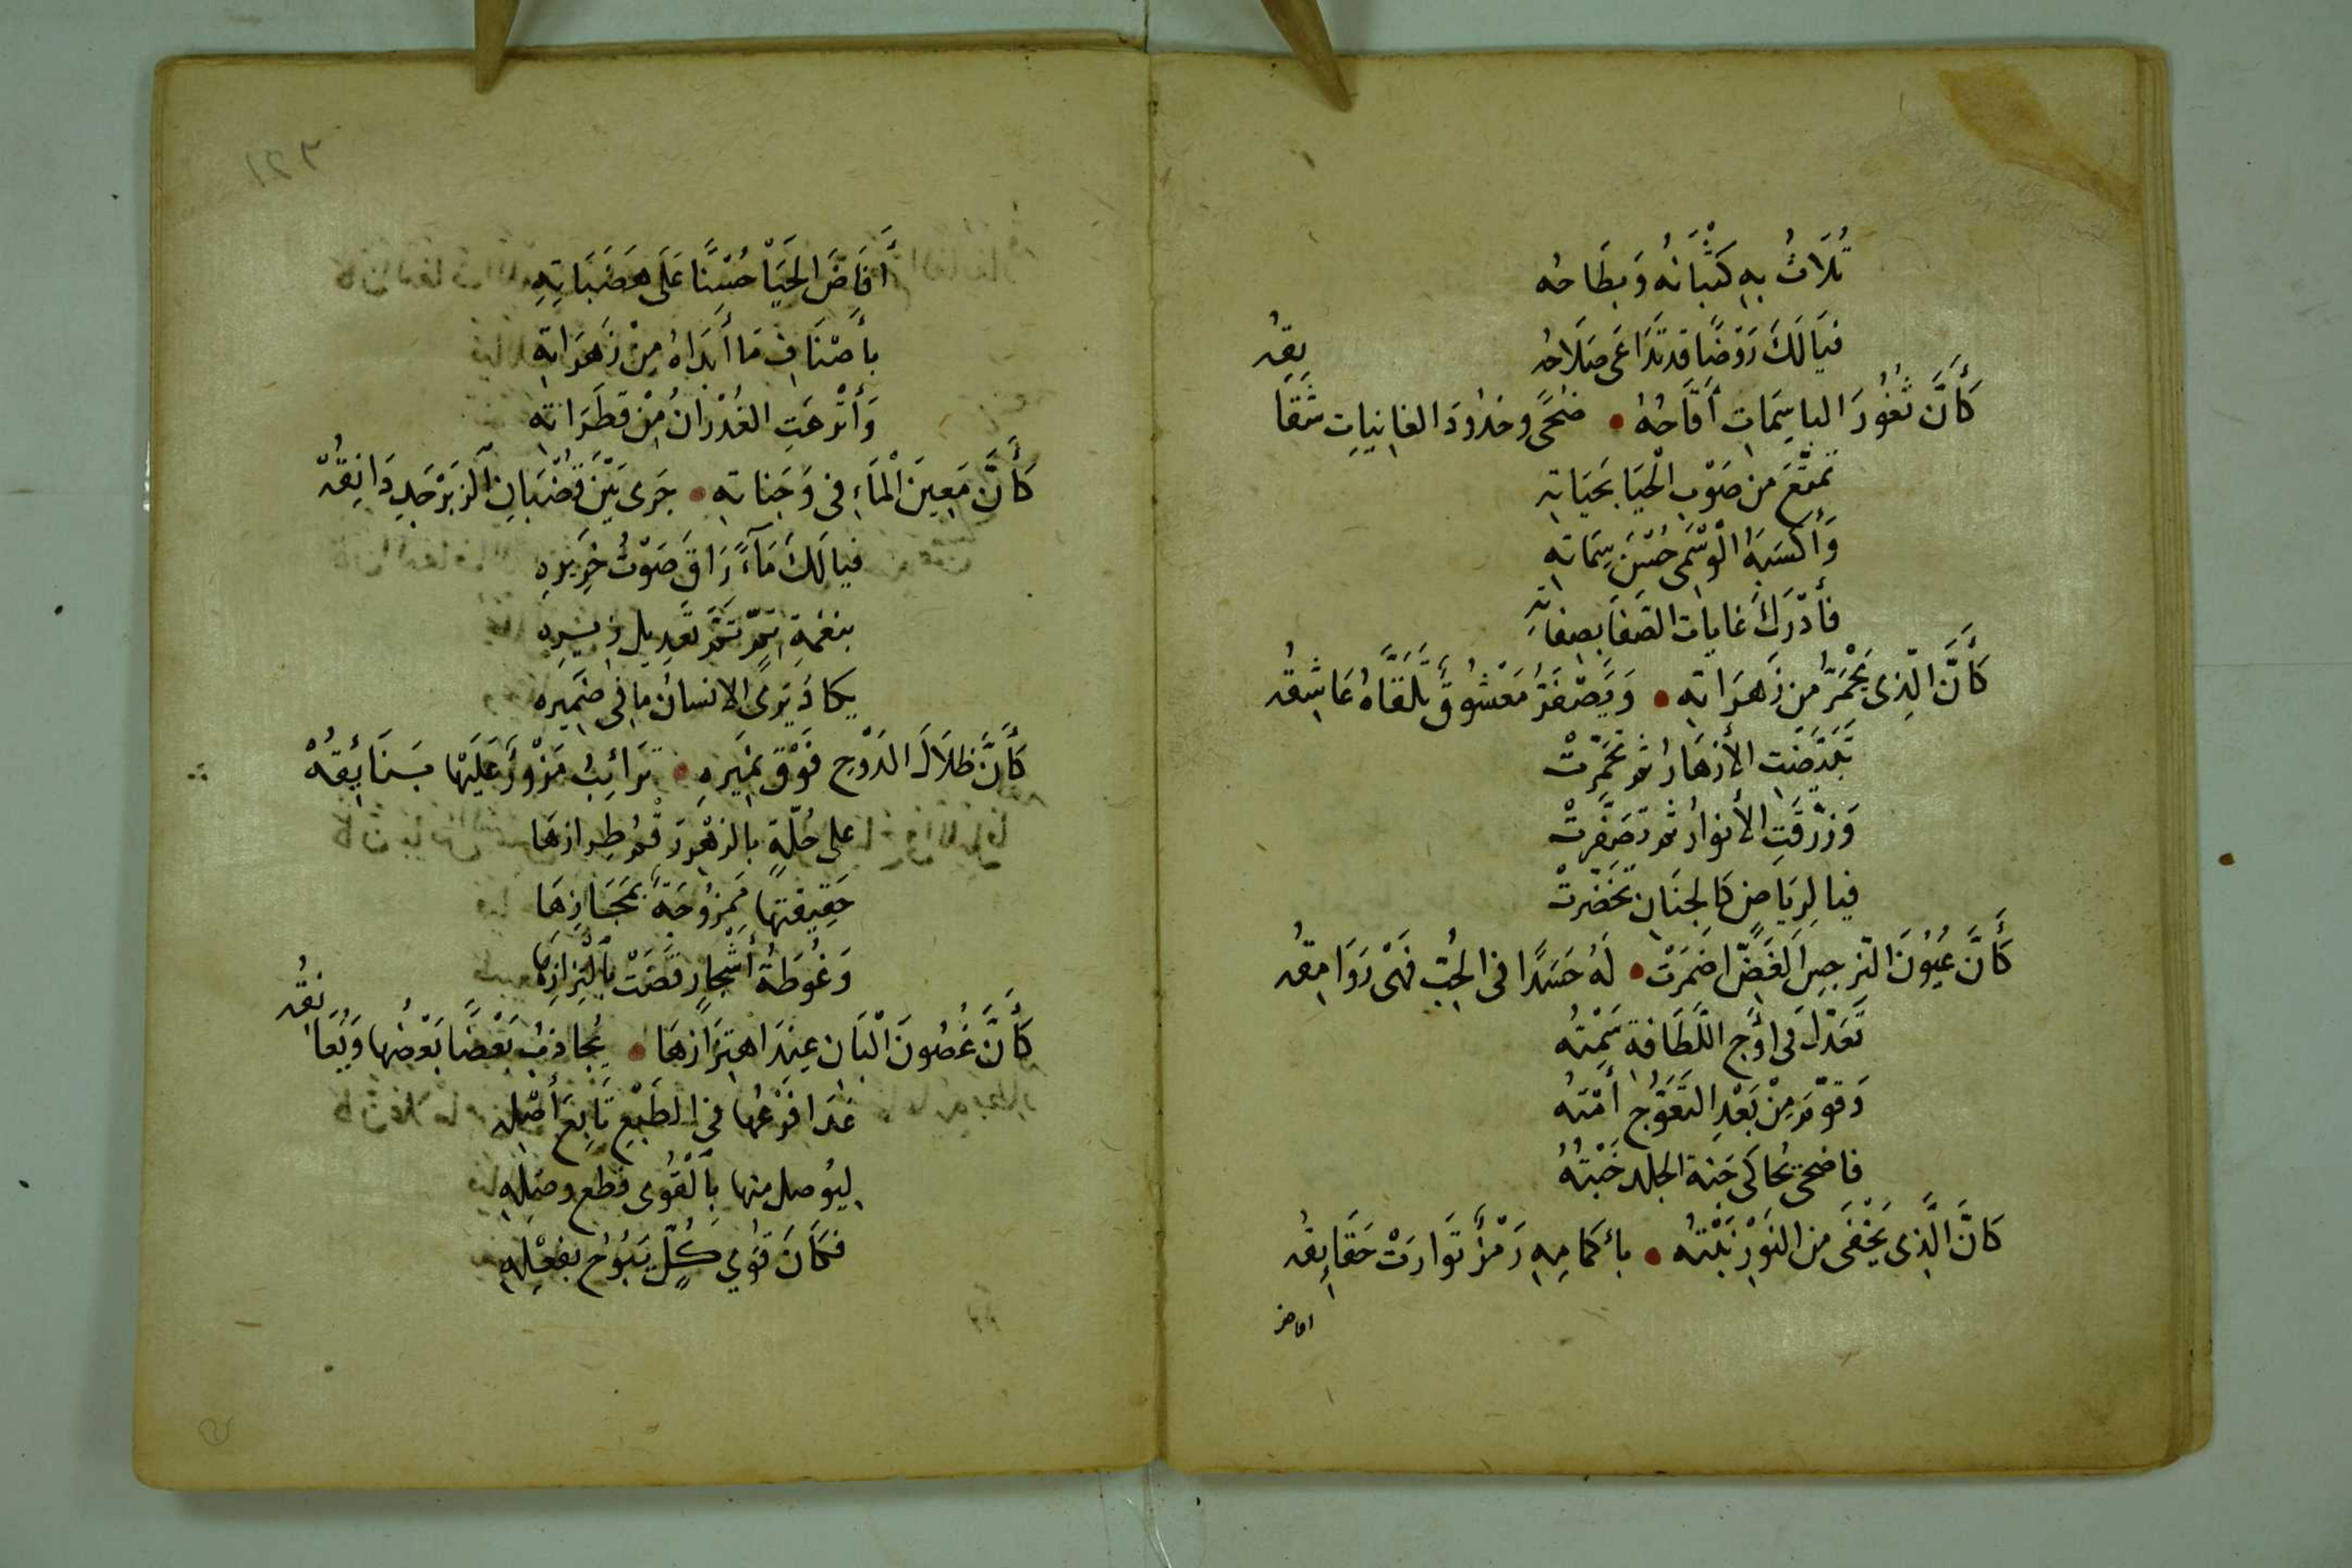 تُلَاثُ بِهِ كُثْبَانُهُ وَبِطَاحُه
فَيَالَكَ رَوْضًا قد تَدَاعَى صَلَاحُه
كَأَنَّ ثُغُورَ الباسِمَاتِ أَقَاحُهُ • ضُحًى وخدُودَ الغانِيَاتِ شَقَايِقُه
تمتَّعَ من صَوْبِ الْحَيَا بحَيَاتِه
وَأَكسَبَهُ الْوَسْمِى حُسْنَ سِمَاتِه
فأدْرَكَ غايات الصَّفَا بصفاتِهِ
كَأَنَّ الّذِى يَحْمَرُّ من زَهَرَاتِهِ • وَيَصْفَرُّ مَعْشُوقٌ تَلَقَّاهُ عَاشِقُه
تَبَيَّضَتِ الأزهَارُ ثم تَحَمَّرتْ
وَزُرِّقَتِ الأنوارُ ثم تَصَفَّرتْ
فيا لِرِيَاضٍ كَالجِنَانِ تخَضَّرتْ
كَأَنَّ عُيُونَ النّرجِسِ الْغَضِّ اضمَرَتْ • لَهُ حَسَدًا فى الحُبِّ فَهْىَ رَوَامِقُه
تَعَدَّلَ فى اوْجِ اللَّطَافةِ سَمْتُه
وَقوِّمَ مِنْ بَعْدِ التَّعَوُّجِ أَمْتُه
فاضحى يُحاكى جَنةَ الخلد خَبْتُهُ
كَانَّ الَّذِى يَخْفَى من النَّوْرِ نَبْتُه • بأكمامِهِ رَمْزٌ تَوَارَتْ حَقَايِقُه
افاض
أَفَاضَ الحَيَا حُسْنًا عَلَى هَضَبَاتِهِ
بأَصْنَافِ مَا أَبدَاهُ مِنْ زَهَرَاتِهِ
وَأُتْرِعَتِ الغُدْرَانُ مِنْ قَطَرَاتِه
كَأَنَّ مَعِينَ الْمَاءِ فى وَجَناتِه • جَرى بَيْنَ قُضْبَانِ الزَبَرْجَدِ دَانِقُهْ
فيا لَكَ مَآءً رَاقَ صَوْتُ خَرِيرِهِ
بنغمةِ بَمٍّ ثمَّ تَعدِيل زيرِه
يكادُ يَرى الانسانُ ما فى ضَمِيرِه
كَأَنَّ ظلَالَ الدَوْحِ فَوْقَ نَمِيرِهِ • تَرائِبُ مَزْورٌ عَلَيْهَا بَنَائِقُهْ
على حُلّةٍ بالزهْرِ رَقْمُ طِرازهَا
حَقِيقتها مَمزُوجَةٌ بمَجَازِهَا
وَغُوطَةُ أَشْجارٍ
كَأَنَّ غُصُونَ الْبَانِ عِنْدَ اهتِزَازهَا • يُجاذبُ بَعْضًا بَعْضُها وَيُعَانِقُه
غدَا فَرْعُهَا فى الطَبْعِ تَابِعَ أَصْلِهِ
لِيُوصل منها بالْقُوى قطعَ وصْلِهِ
فكَانَ قُوى كُلٍّ يَبُوحُ بفِعْلِهِ